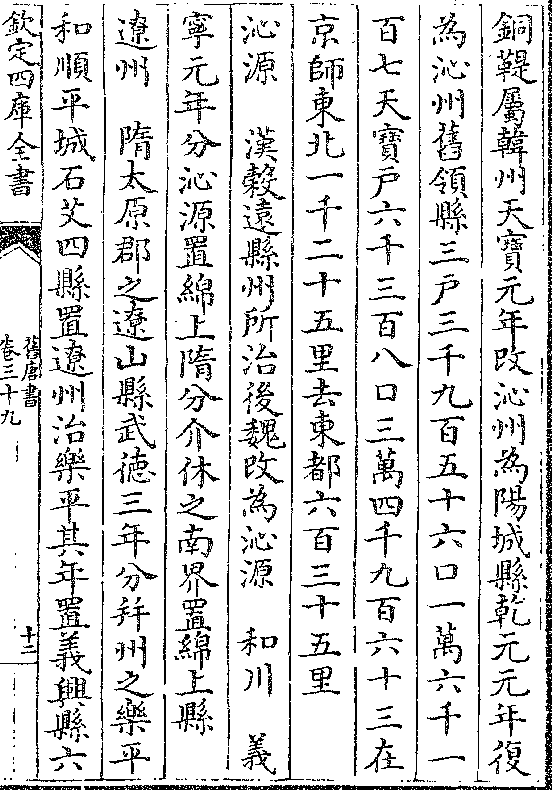 銅鞮屬韓州天寳元年改沁州為陽城縣乾元元年復
為沁州舊領縣三戸三千九百五十六口一萬六千一
百七天寳戸六千三百八口三萬四千九百六十三在
京師東北一千二十五里去東都六百三十五里
沁源 漢穀遠縣州所治後魏改為沁源 和川 義
寧元年分沁源置綿上隋分介休之南界置綿上縣
遼州 隋太原郡之遼山縣武德三年分并州之樂平
和順平城石艾四縣置遼州治樂平其年置義興縣六
欽定四庫全書
舊唐書
卷三十九
十二